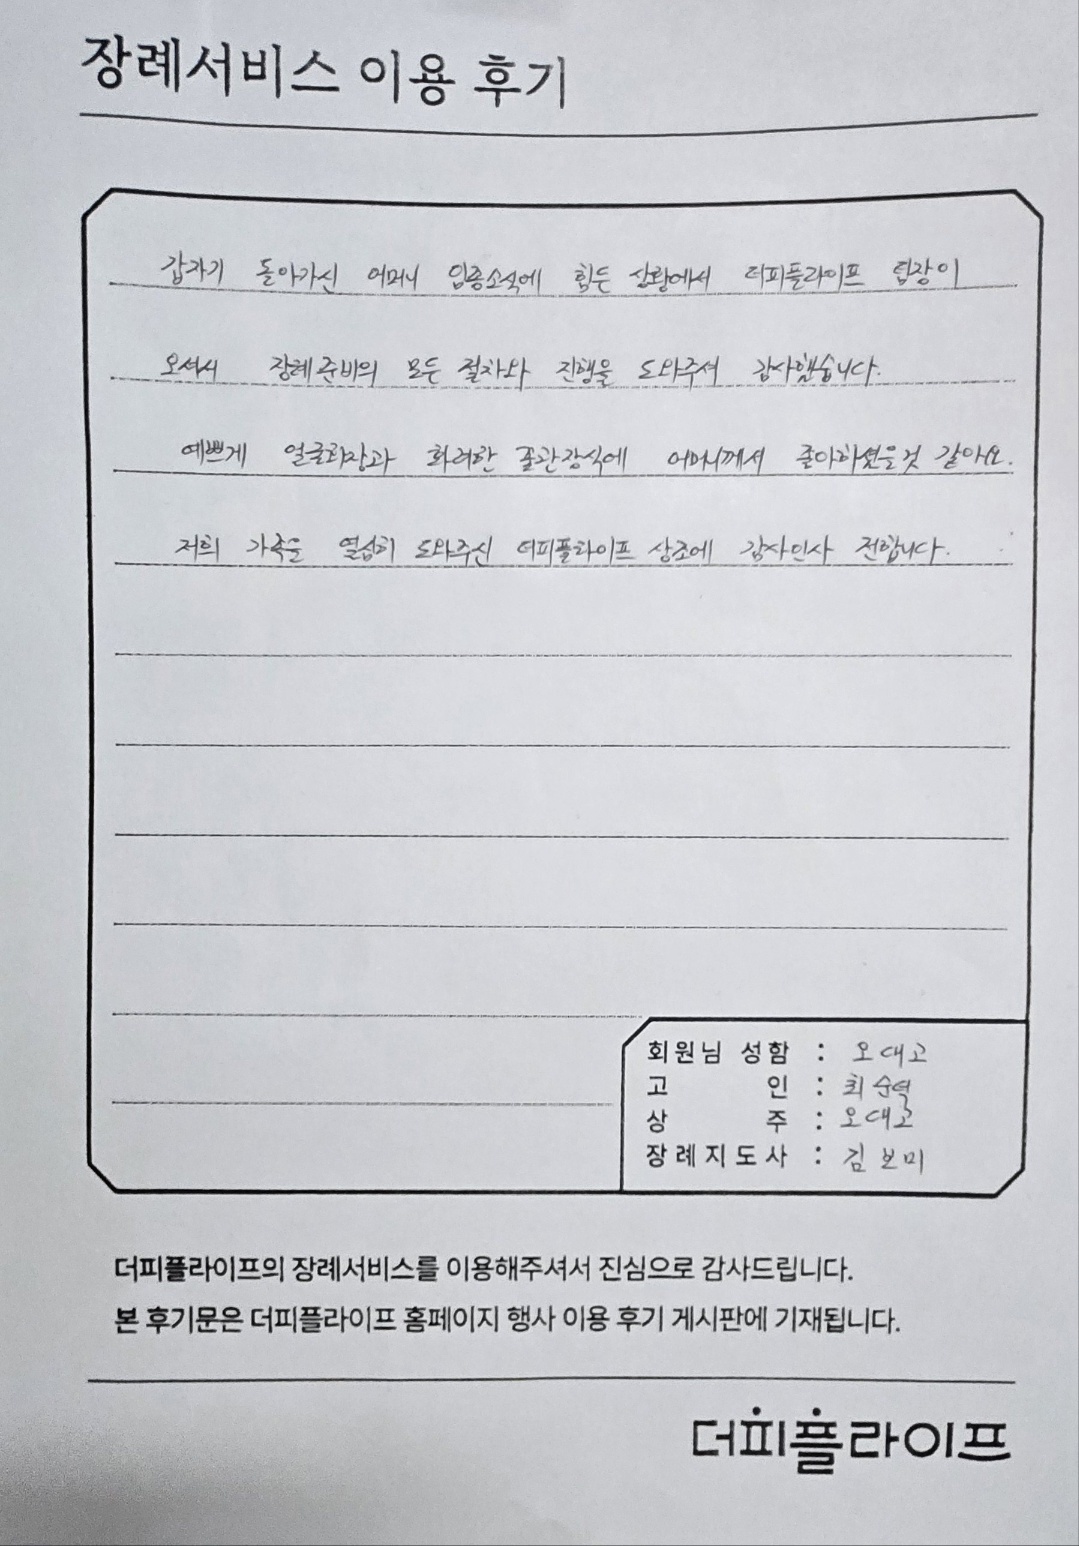 장례서비스 이용 후기
갑자기 돌아가신 어머니 임종소식에 힘든 상황에서 더피플라이프 팀장이
오셔서 장례준비의 모든 절차와 진행을 도와주셔 감사했습니다.
예쁘게 얼굴화장과 화려한 꽃관장식에 어머니께서 좋아하셨을것 같아요.
저희 가족을 열심히 도와주신 더피플라이프 상조에 감사인사 전합니다.
회원님 성함 : 오대고
고 인 : 최순덕
상 주 : 오대고
장례지도사 : 김보미
더피플라이프의 장례서비스를 이용해주셔서 진심으로 감사드립니다.
본 후기문은 더피플라이프 홈페이지 행사 이용 후기 게시판에 기재됩니다.
더피플라이프